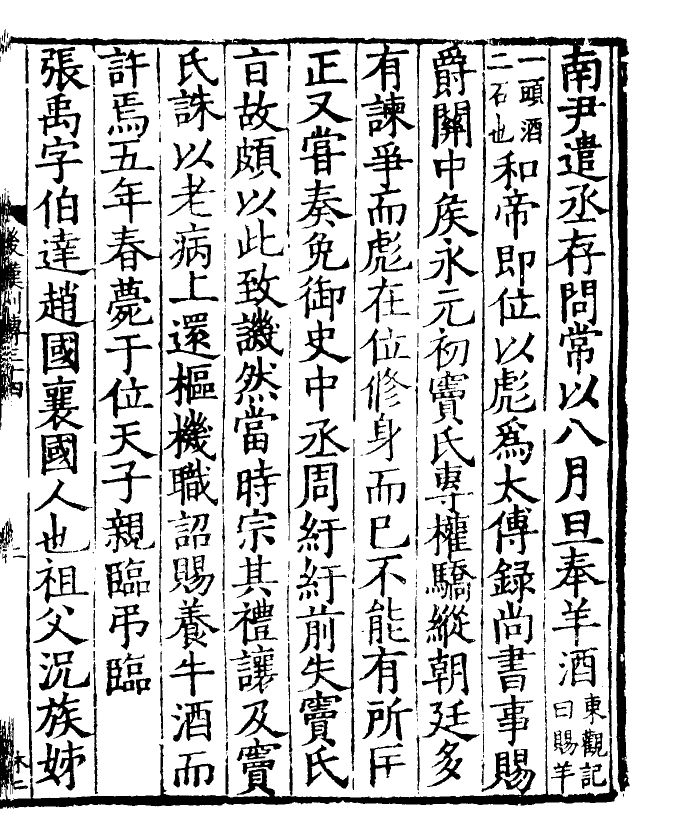 南尹遣丞存問常以八月旦奉羊酒東觀記曰賜羊
一頭酒二石也和帝即位以彪爲太傅録尚書事賜
爵關中矦永元初竇氏專權驕縱朝廷多
有諫爭而彪在位修身而已不能有所匡
正又嘗奏免御史中丞周紆紆前失竇氏
㫖故頗以此致譏然當時宗其禮讓及竇
氏誅以老病上還樞機職詔賜養牛酒而
許焉五年春薨于位天子親臨弔臨
張禹字伯達趙國襄國人也祖父況族姊
後漢列傳三十四
二